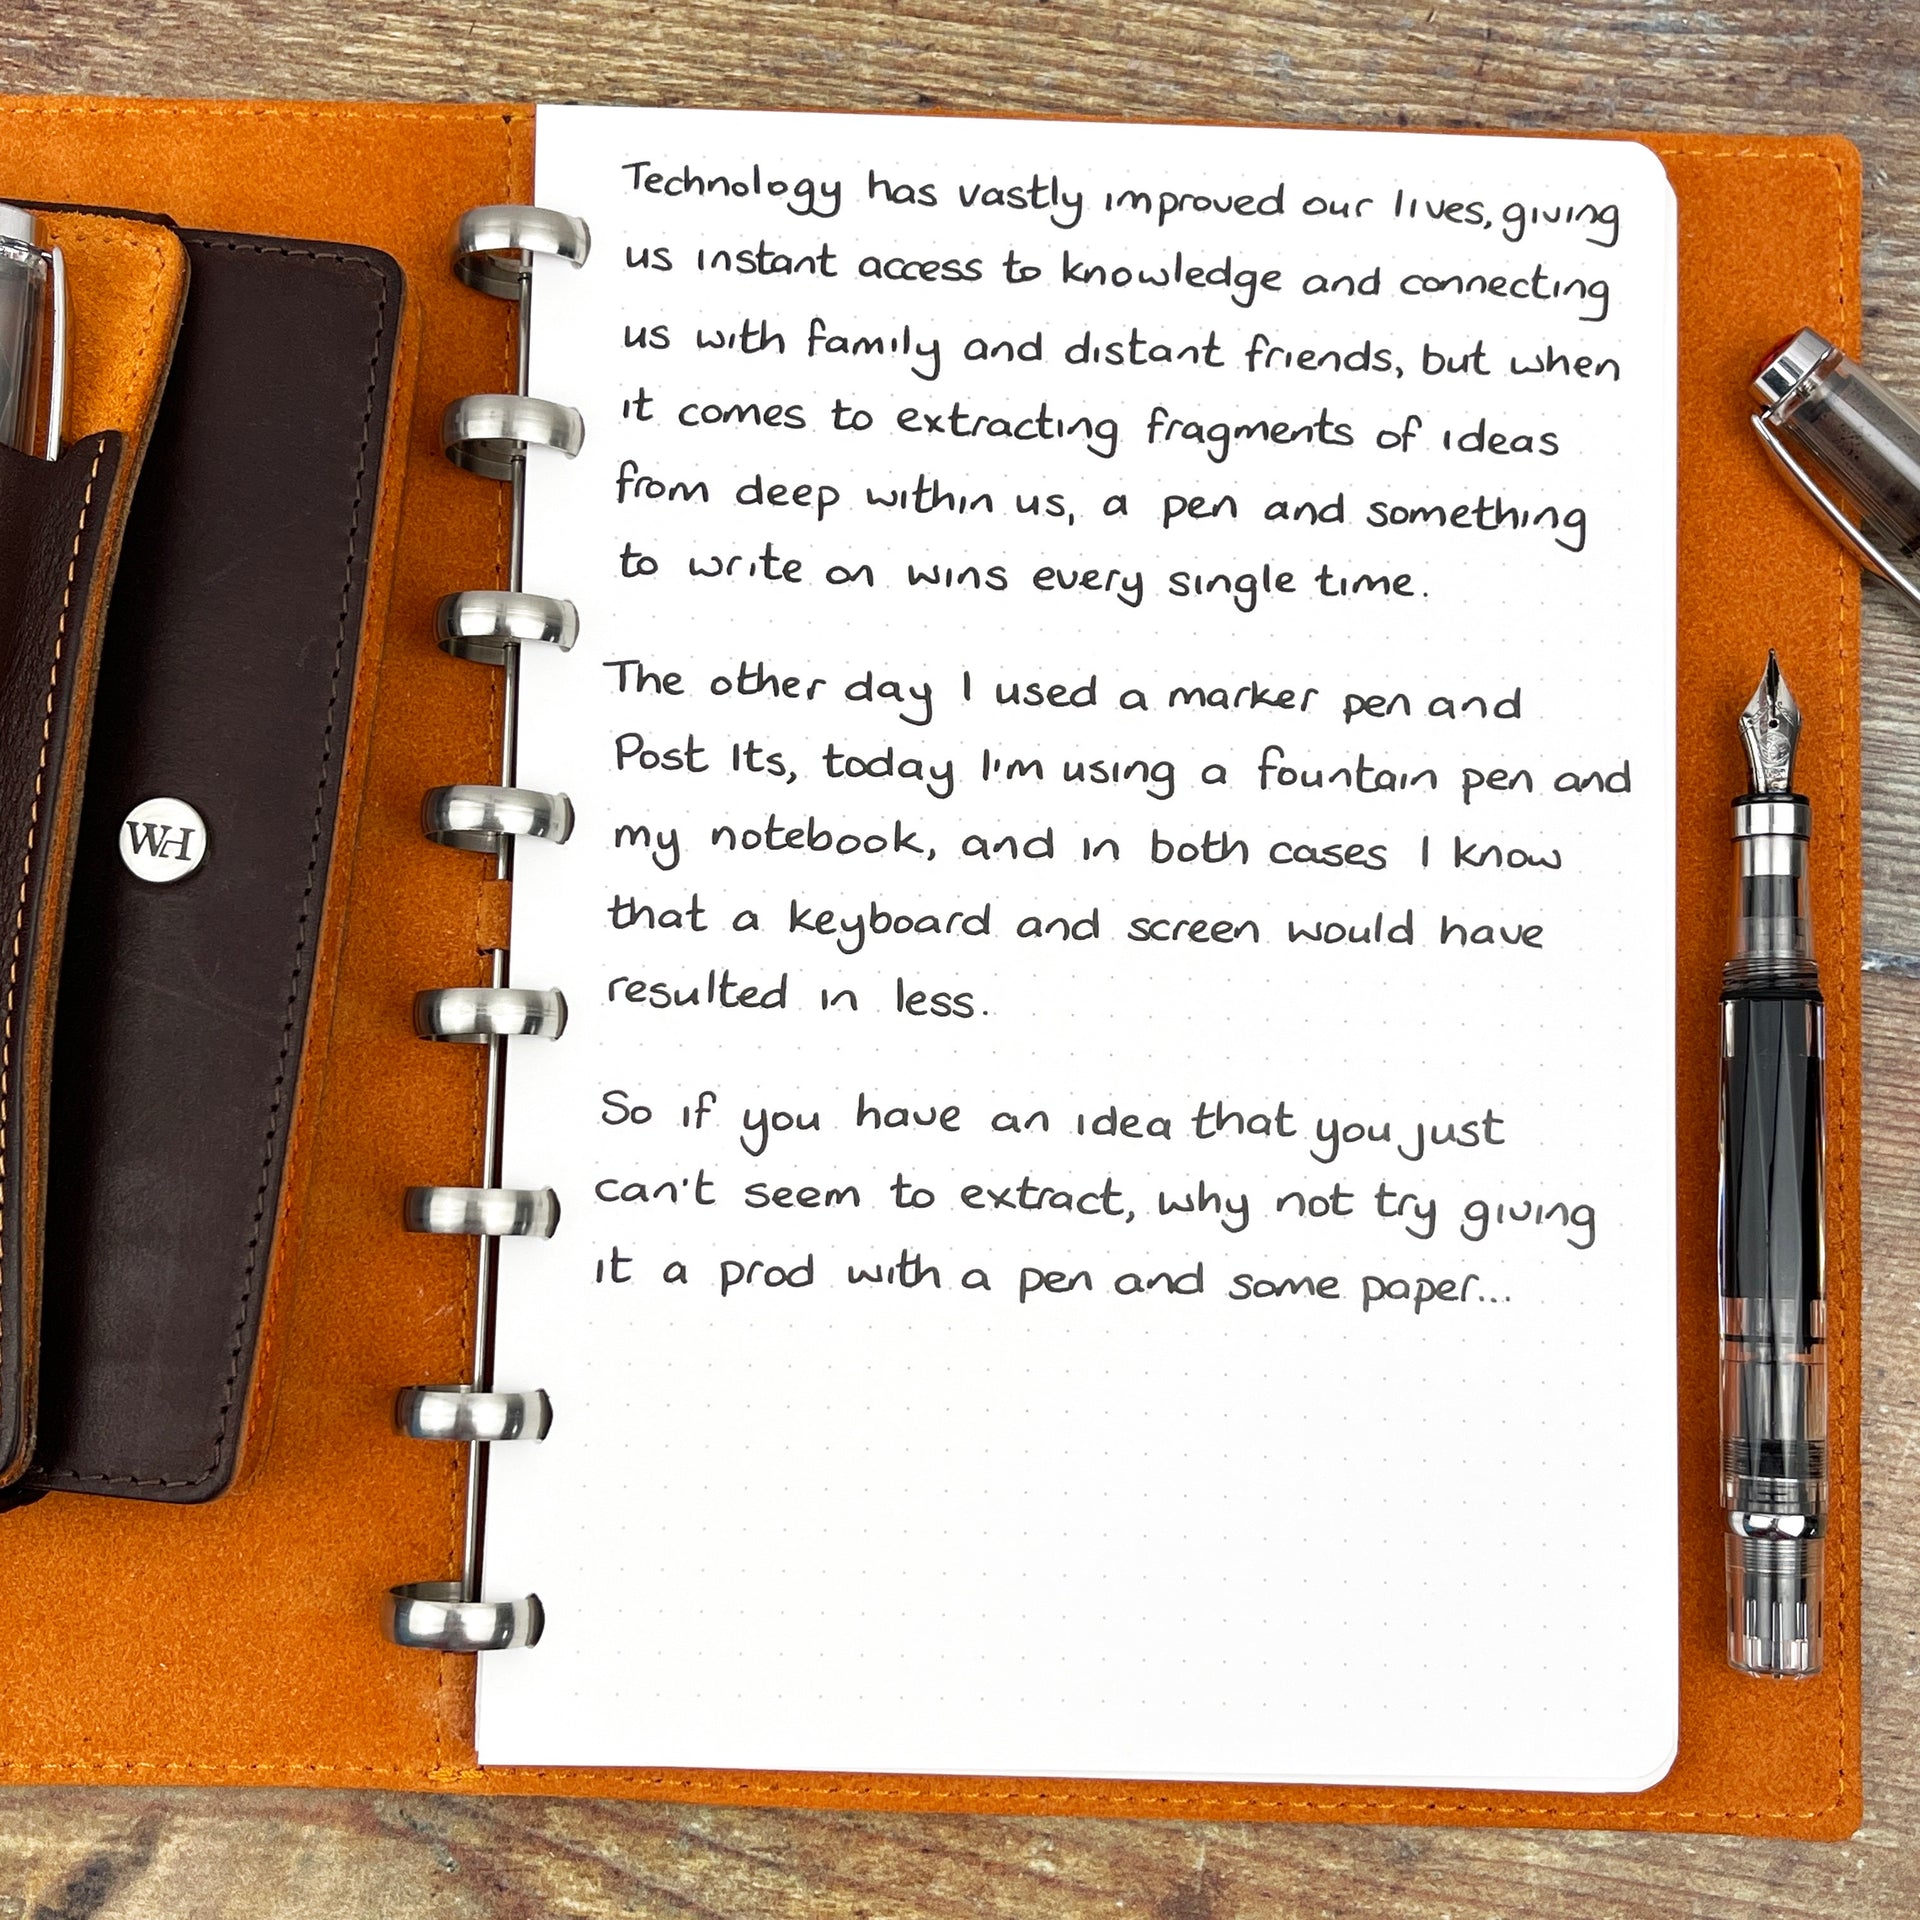 Technology has vastly improved our lives, giving
us instant access to knowledge and connecting
us with family and distant friends, but when
it comes to extracting fragments of ideas
from deep within us, a pen and something
to write on wins every single time.
The other day I used a marker pen and
Post Its, today I'm using a fountain pen and
my notebook, and in both cases I know
that a keyboard and screen would have
resulted in less.
So if you have an idea that you just
can't seem to extract, why not try giving
it a prod with a pen and some paper...
WH